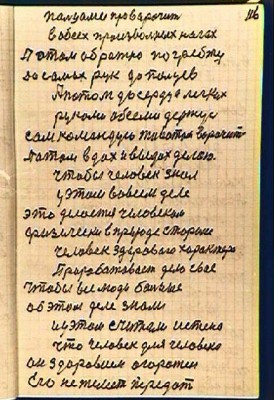 116
пальцами проворочит
в обеих произвольных ногах
Потом обратно по гребжу
до самых рук до пальцев
А потом до сердца легких
руками обеими держу
сам командую живот проворочит
Потом вдох и выдох делаю
чтобы человек знал
в этом во всем деле
это делается человеком
физически в природе стороне
человек здорового характера
Проповаживает дело свое
Чтобы все люди больше
об этом деле знали
и в этом считали истина
что человек для человека
он здоровием огорожен
Его не жалеет передат